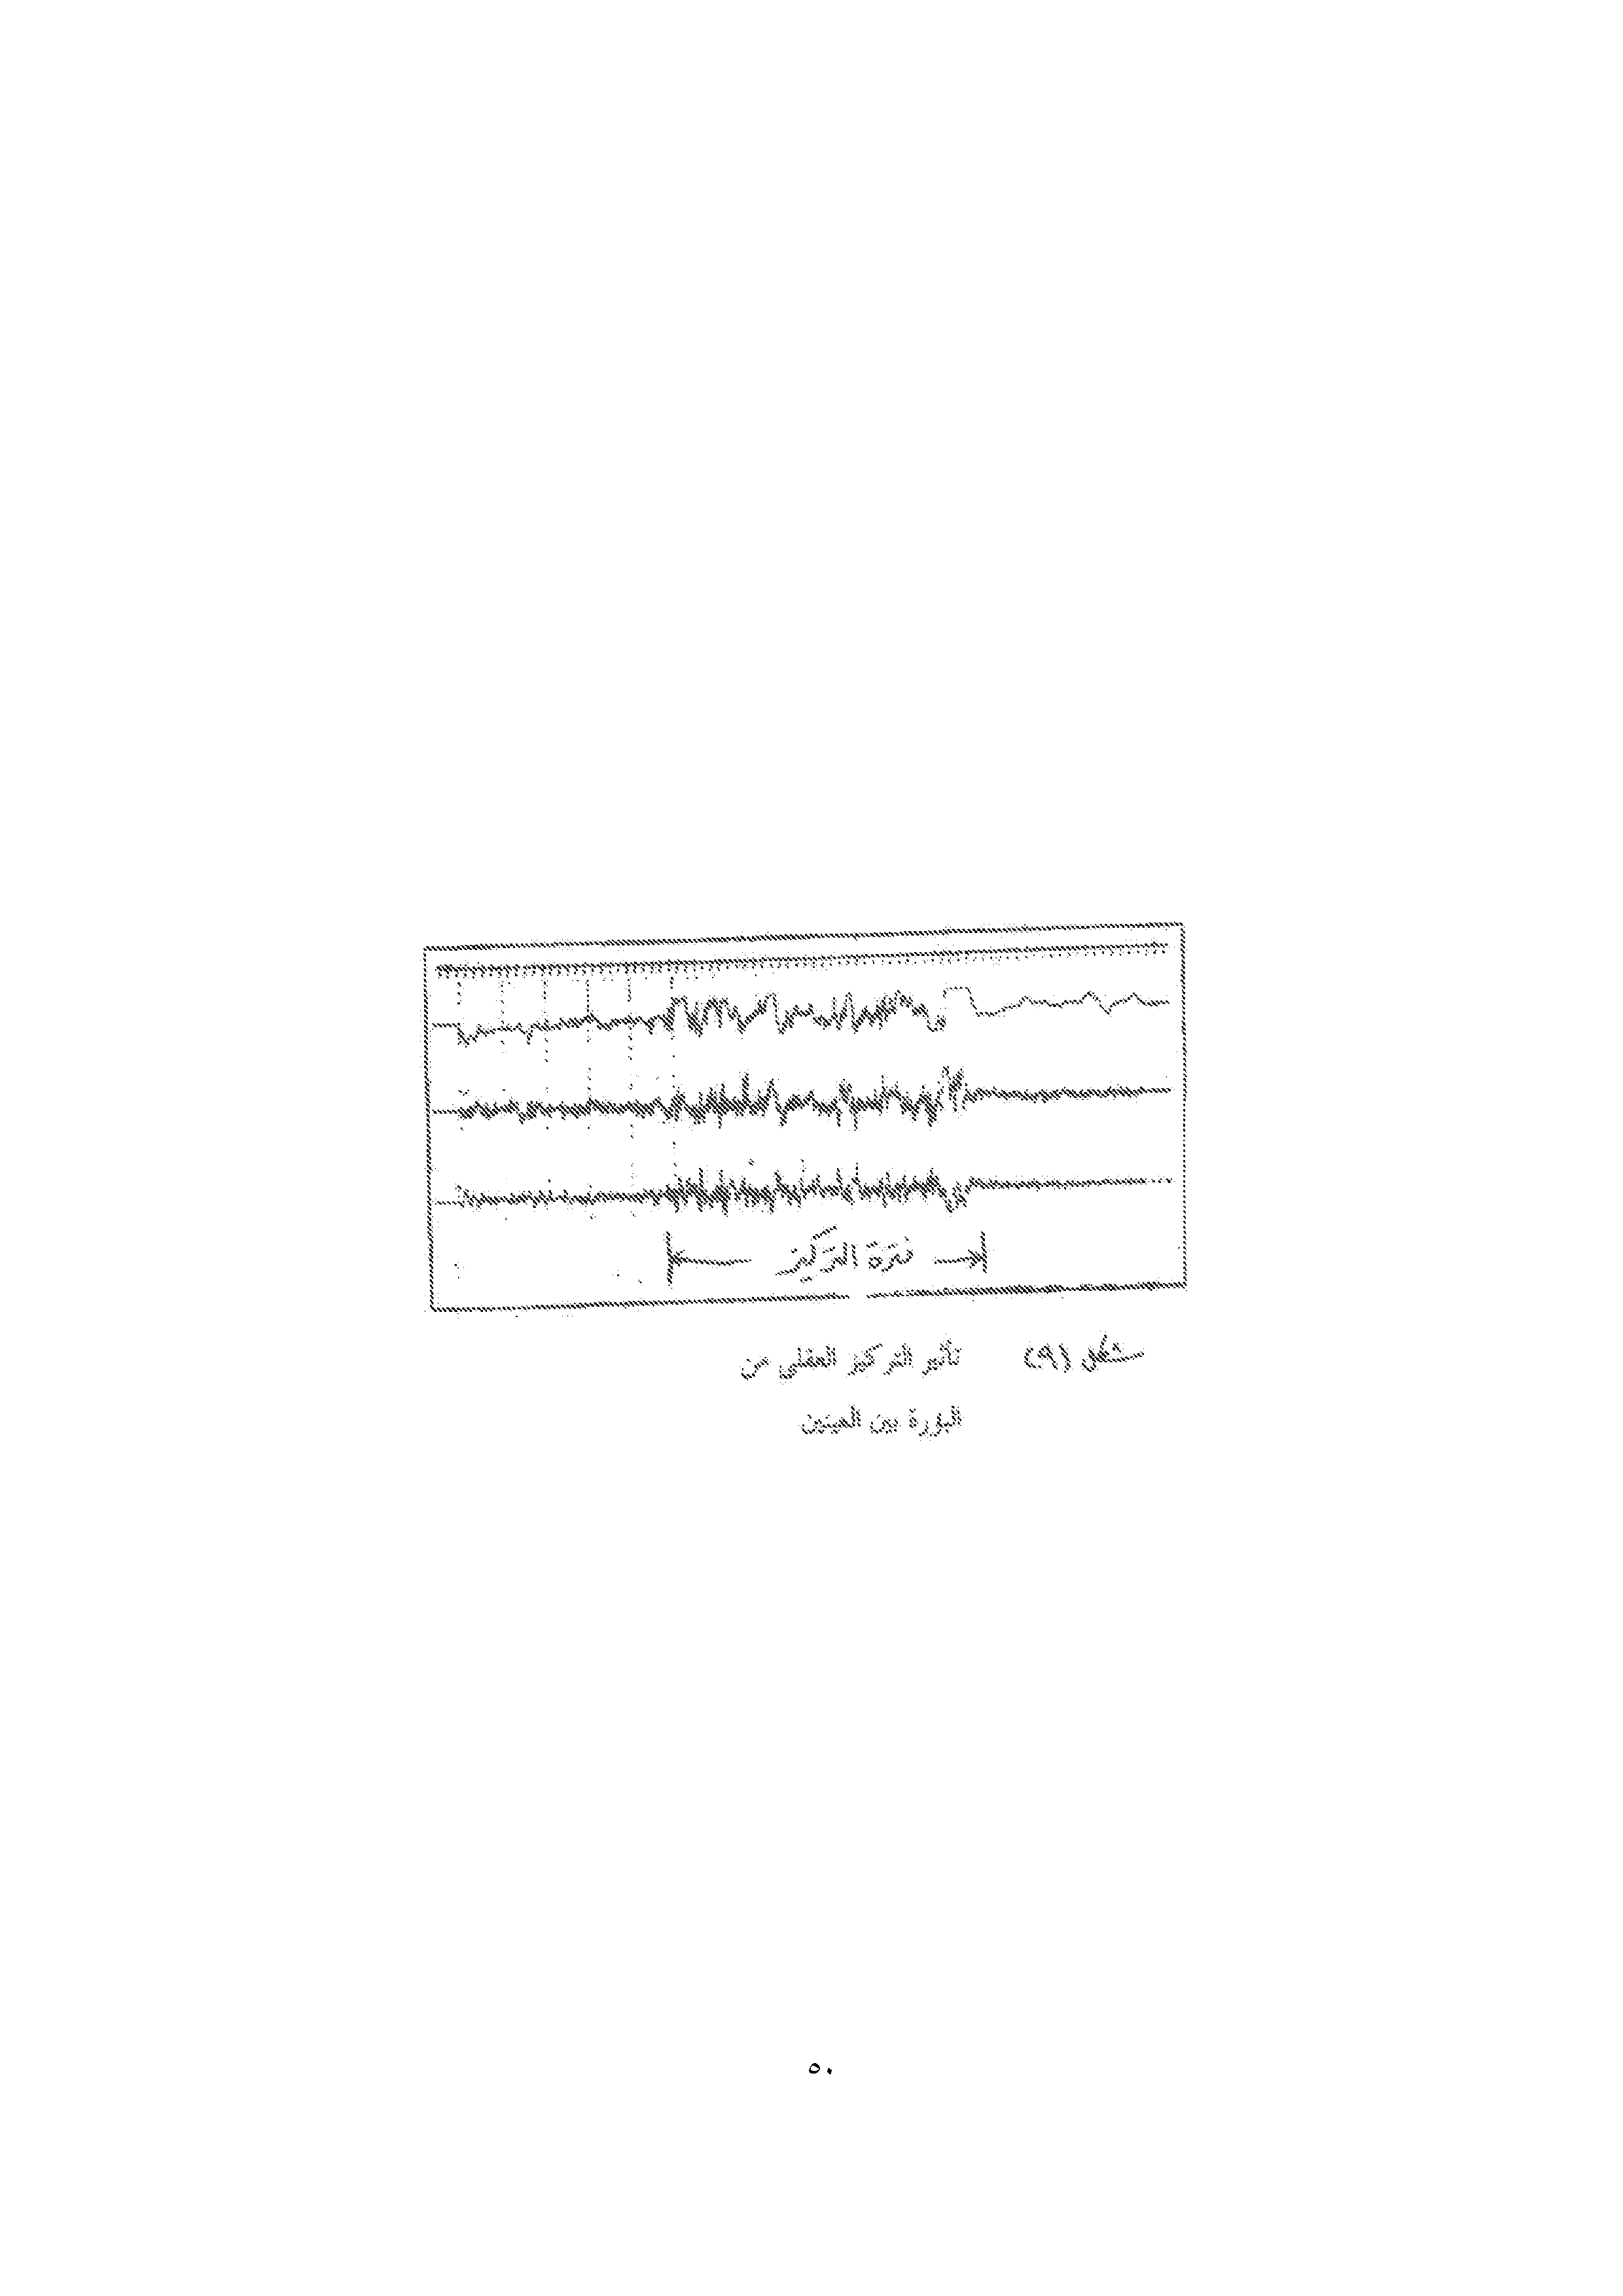 فترة التركيز
شكل (٩) تأثير التركيز العقلي من
البؤرة بين العينين
٥٠